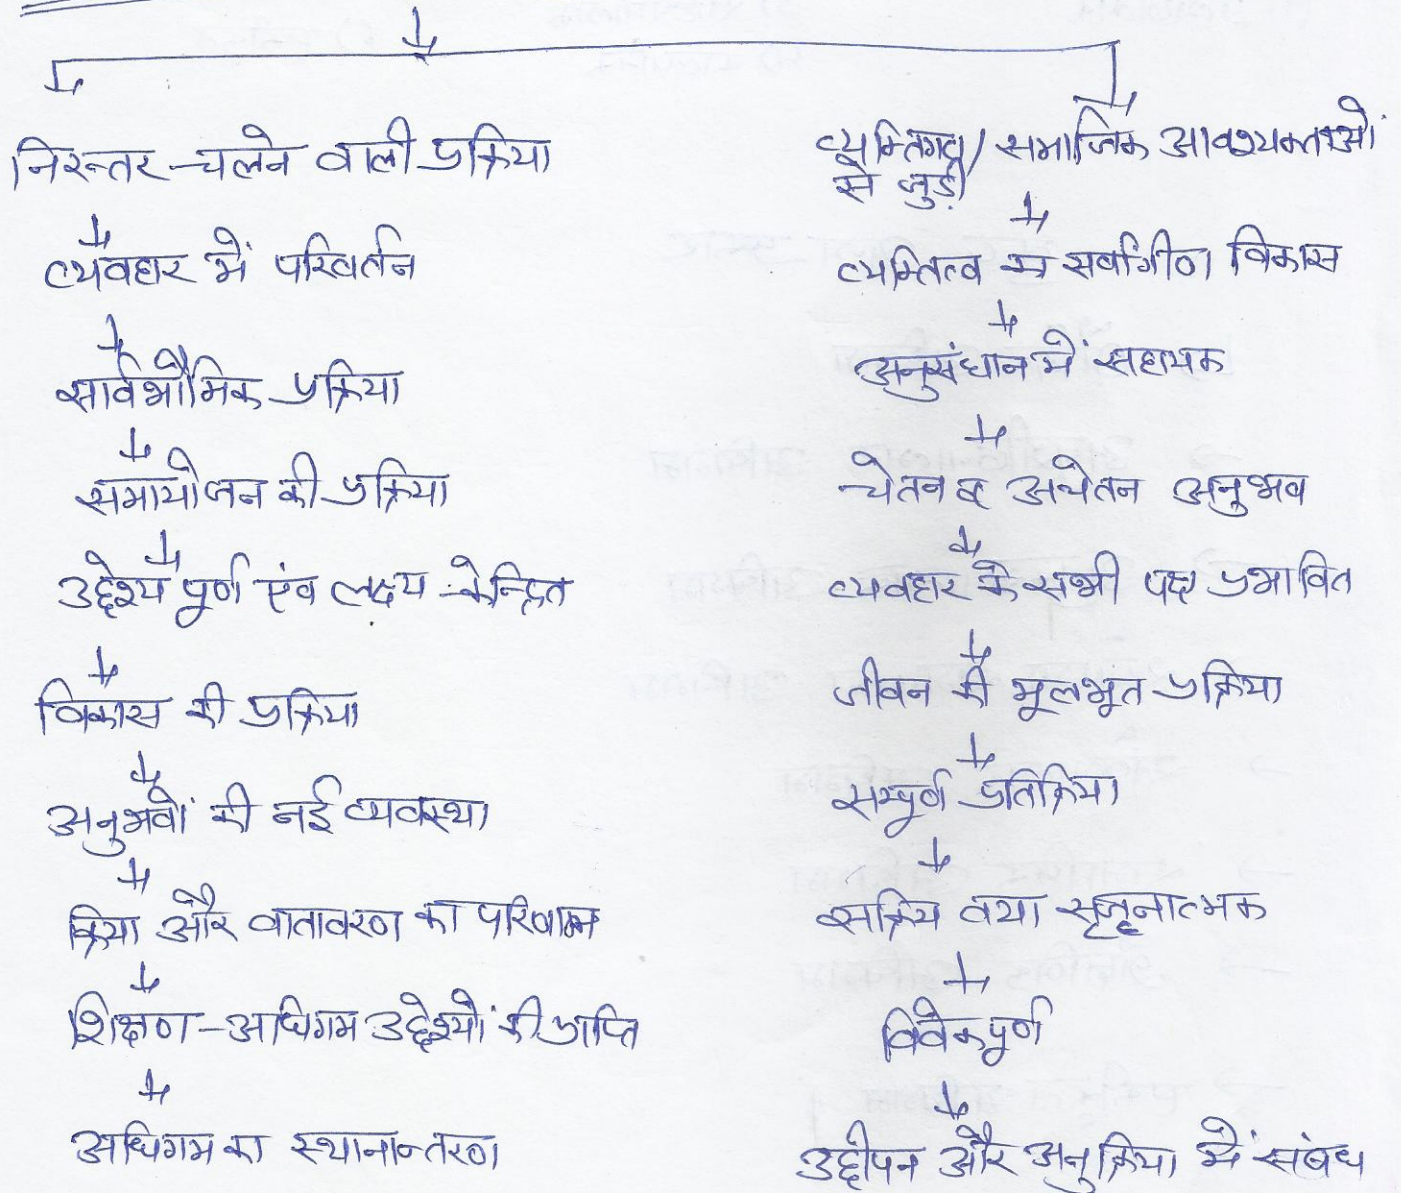 निरन्तर चलने वाली प्रक्रिया
व्यवहार में परिवर्तन
सार्वभौमिक प्रक्रिया
समायोजन की प्रक्रिया
उद्देश्य पूर्ण एंव लक्ष्य केन्द्रित
विकास की प्रक्रिया
अनुभवों की नई व्यवस्था
क्रिया और वातावरण का परिणाम
शिक्षण - अधिगम उद्देश्यों की प्राप्ति
अधिगम का स्थानान्तरण
व्यक्तिगत / समाजिक आवश्यकताओं
से जुड़ी
व्यक्तित्व का सर्वांगीण विकास
अनुसंधान में सहायक
चेतन व अचेतन अनुभव
व्यवहार के सभी पक्ष प्रभावित
जीवन की मूलभूत प्रक्रिया
सम्पूर्ण प्रतिक्रिया
सक्रिय तथा सृजनात्मक
विवेकपूर्ण
उद्दीपन और अनुक्रिया में संबंध